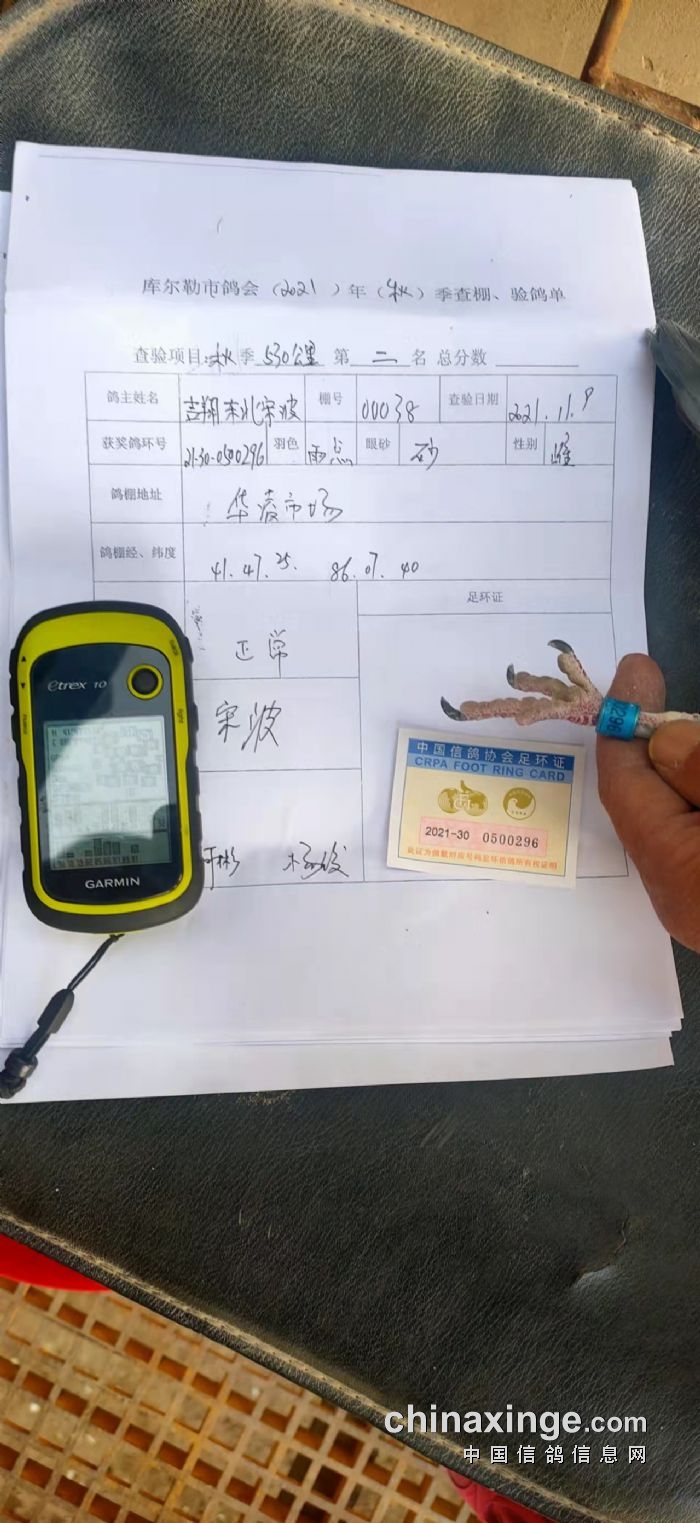 库尔勒市鸽会（2021）年（秋）季查棚、验鸽单
查验项目:秋季 530公里 第 二 名 总分数
鸽主姓名 吉翔东北宋波 棚号 00038 查验日期 2021.11.9
获奖鸽环号 21-30-0500296 羽色 雨点 眼砂 砂 性别 雌
鸽棚地址 华凌市场
鸽棚经、纬度 41.47.25. 86.07.40
足环证
正常
宋波
etrex 10
GARMIN
中国信鸽协会足环证
CRPA FOOT RING CARD
2021-30 0500296
chinaxinge.com
中国信鸽信息网